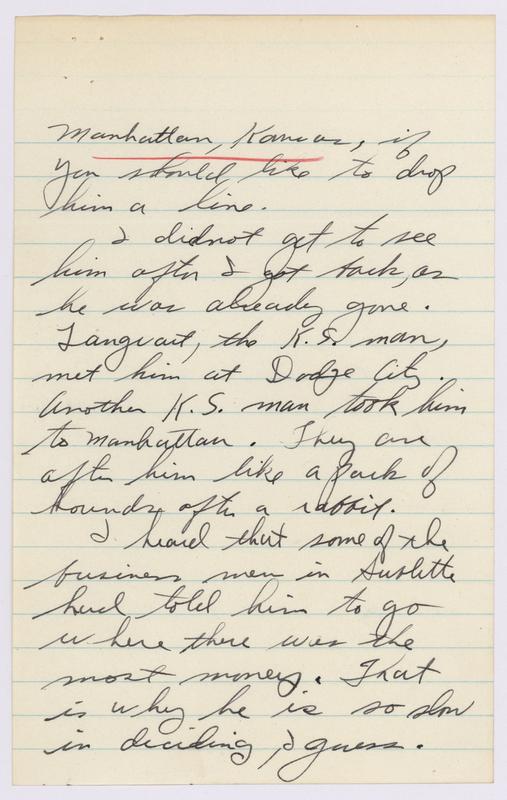 Manhattan, Kansas, if
you should like to drop
him a line.
I didnot get to see
him after I got back, as
he was already gone.
Langvart, the K.S. man,
met him at Dodge City.
Another K.S. man took him
to Manhattan. They are
after him like a pack of
hounds after a rabbit.
I heard that some of the
business men in Sublette
had told him to go
where there was the
most money. That
is why he is so slow
in deciding, I guess.